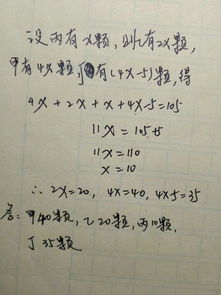 设丙有x颗,则乙有2x颗,
甲有4x颗,丁有(4x-5)颗,得
4x+2x+x+4x-5=105
11x=105+5
11x=110
x=10
∴2x=20, 4x=40, 4x-5=35
答:甲40颗,乙20颗,丙10颗,
丁35颗